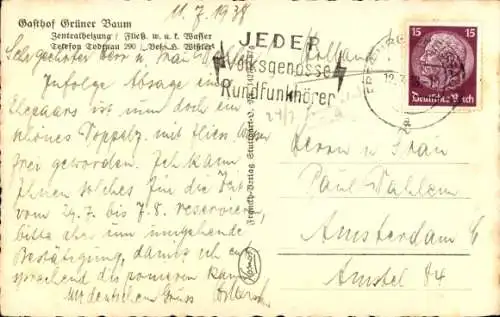 11.7.1938
Gasthof Grüner Baum
Zentralheizung / Fließ. w. u. k. Wasser
Telefon Todtnau 290 / Bes. H. Wißler
Sehr geehrter Herr u. Frau
Holland
Infolge Absage eines
Ehepaars ist uns doch ein
schönes Doppelz. mit fließ. Wasser
frei geworden. Ich kann
Ihnen solches für die Zeit
vom 29.7. bis 7.8. reservieren,
bitte aber um umgehende
Bestätigung, damit ich
disponieren kann
Mit deutschem Gruss
JEDER
Volksgenosse
Rundfunkhörer
15 15
Deutsches Reich
Franckh-Verlag Stuttgart
Herrn u. Frau
Paul Dahlem
Amsterdam C
Amstel 84